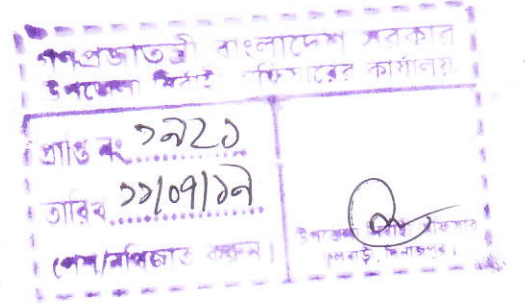 গণপ্রজাতন্ত্রী বাংলাদেশ সরকার
উপজেলা নির্বাহী অফিসারের কার্যালয়
প্রাপ্তি নং ১৯২১
তারিখ ১১/০৭/১৯
পেশ/নথিজাত করুন।
উপজেলা নির্বাহী অফিসার
দিনাজপুর।